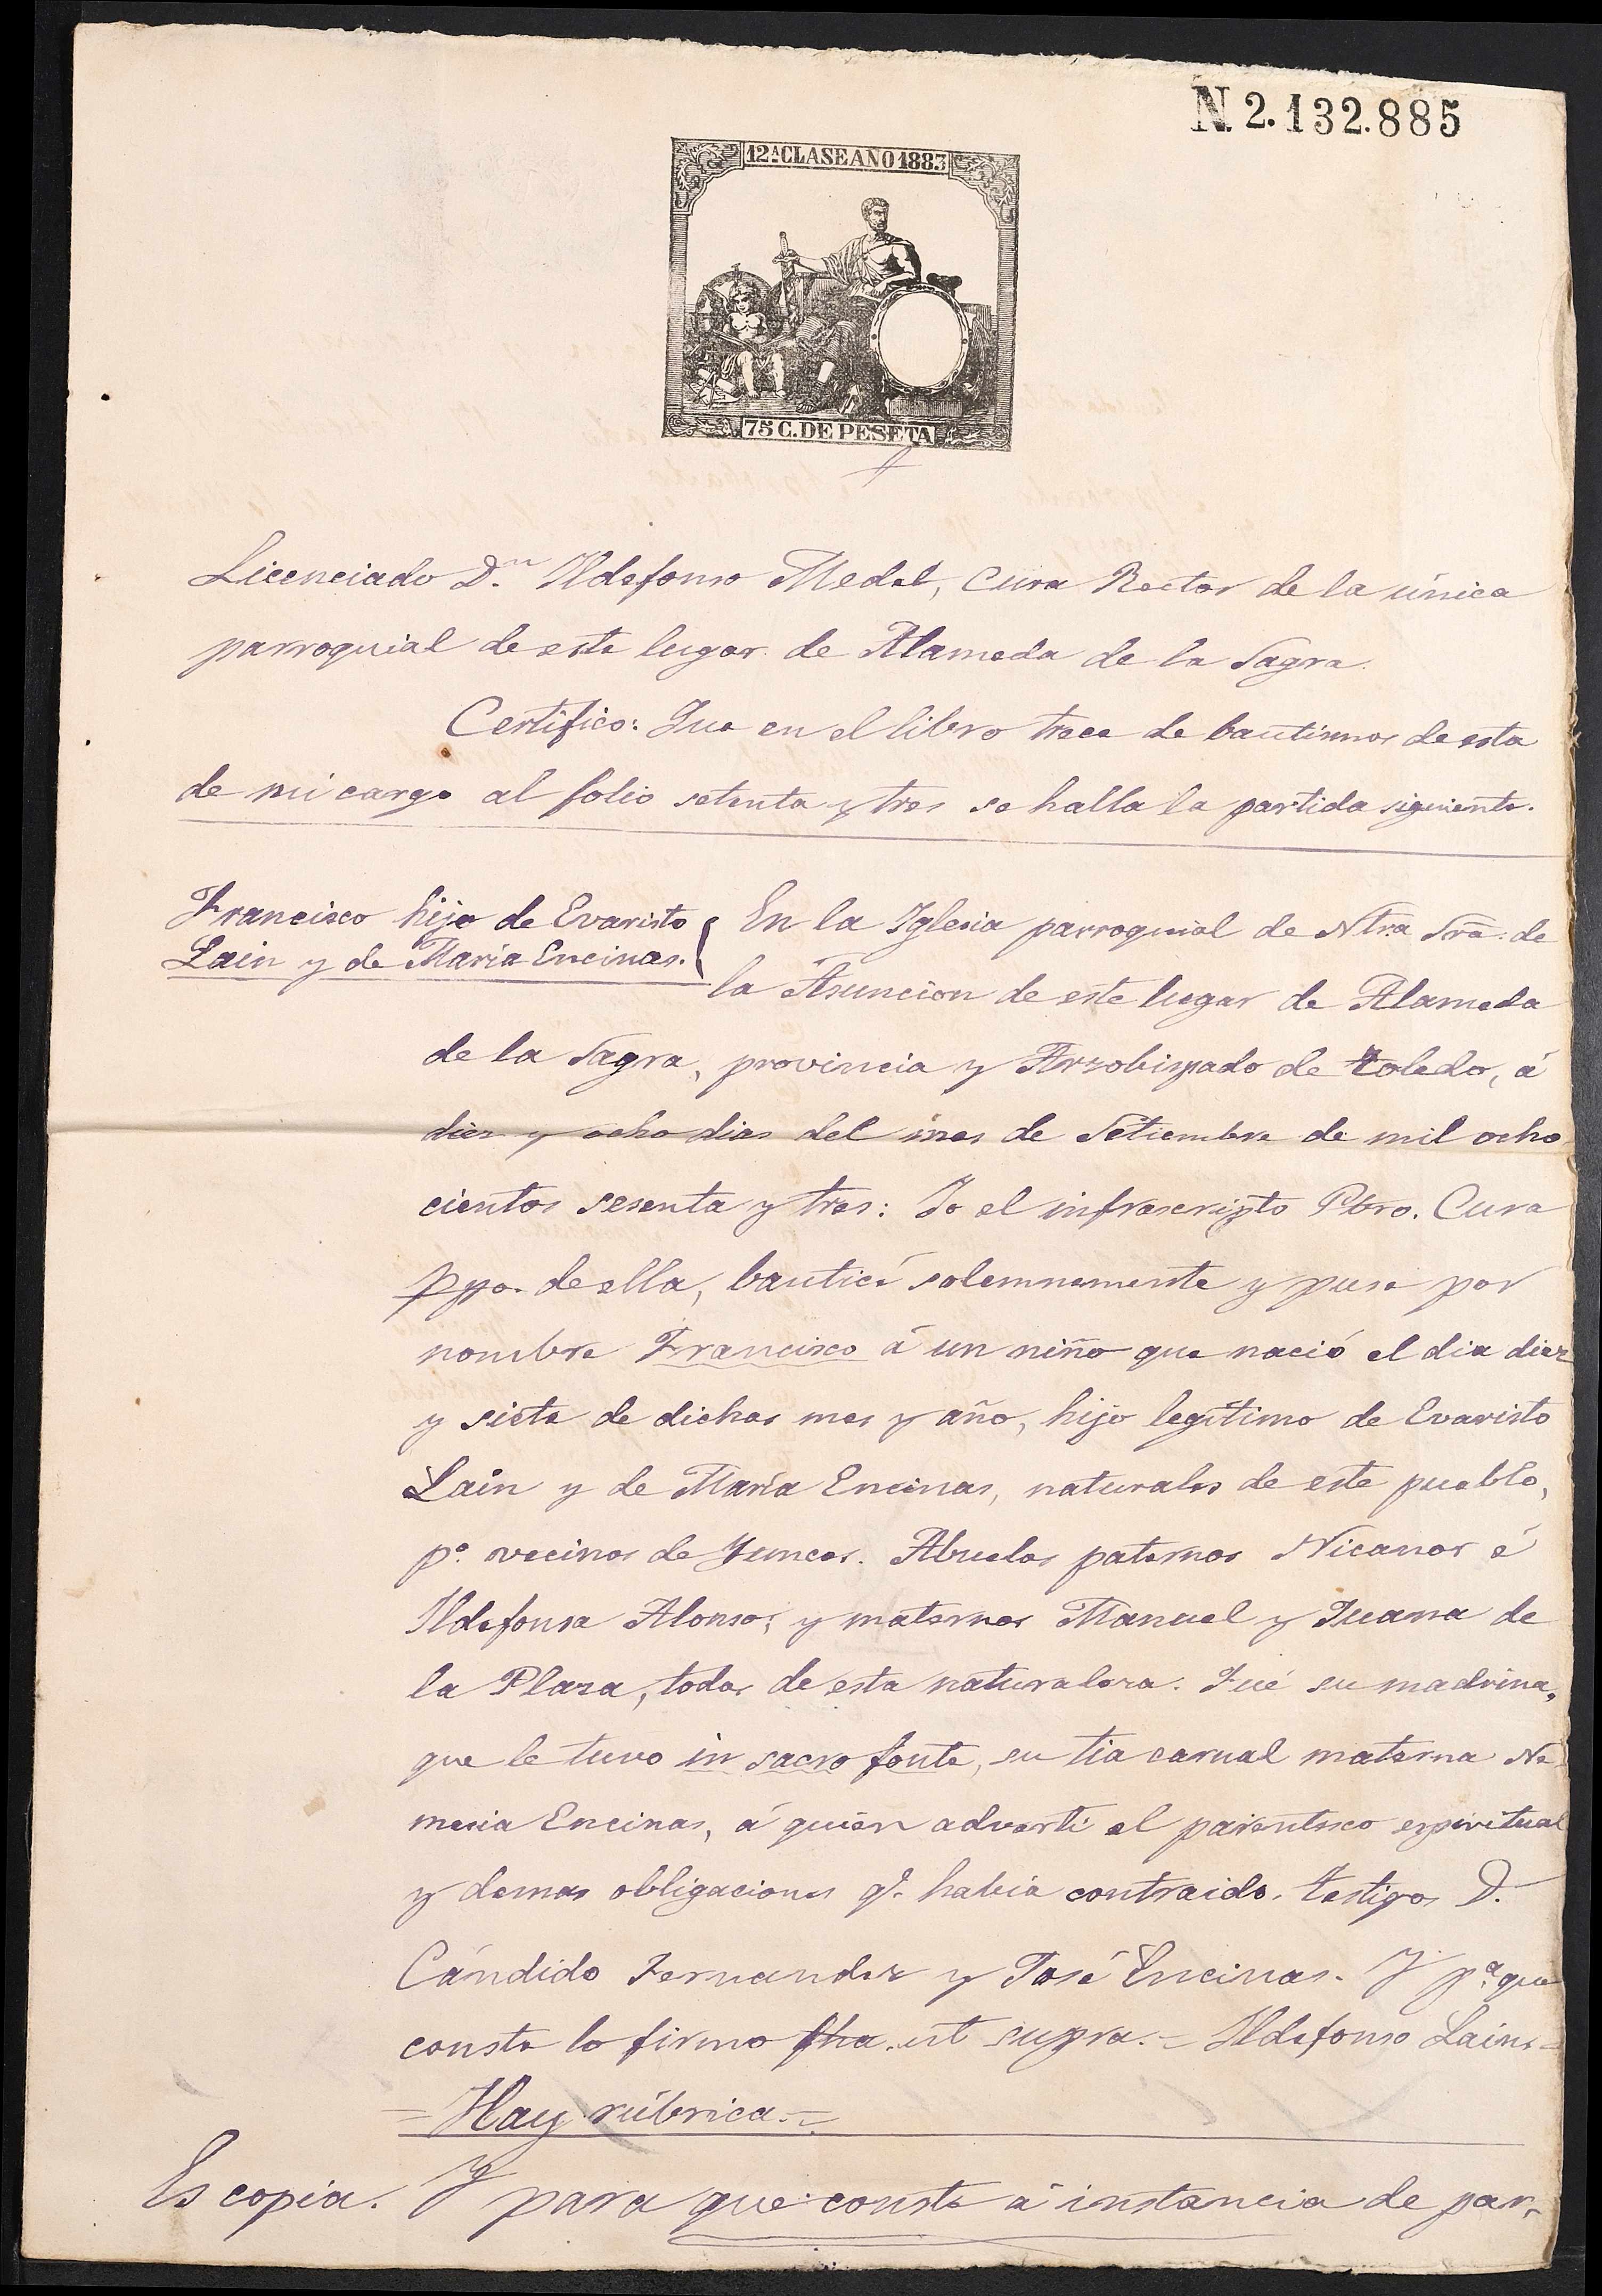 N. 2.132.885
12ª CLASE AÑO 1883
75 C. DE PESETA
Licenciado D.ⁿ Ildefonso Medel, Cura Rector de la única
parroquial de este lugar de Alameda de la Sagra.
Certifico: Que en el libro trece de bautismos de esta
de mi cargo al folio setenta y tres se halla la partida siguiente.
Francisco hijo de Evaristo
Lain y de María Encinas.
En la Iglesia parroquial de Ntra Srã. de
la Asuncion de este lugar de Alameda
de la Sagra, provincia y Arzobispado de toledo, á
diez y ocho dias del mes de Setiembre de mil ocho
cientos sesenta y tres: Yo el infrascripto Pbro. Cura
ppo. de ella, bauticé solemnemente y puse por
nombre Francisco á un niño que nació el dia diez
y siete de dichos mes y año, hijo legítimo de Evaristo
Lain y de María Encinas, naturales de este pueblo,
pº. vecinos de Yuncos. Abuelos paternos Nicanor é
Ildefonsa Alonso; y maternos Manuel y Juana de
la Plaza, todos de esta naturaleza. Fué su madrina,
que le tuvo in sacro fonte, su tia carnal materna Ne
mesia Encinas, á quien advertí el parentesco espiritual
y demas obligaciones q.e había contraido. testigos D.
Cándido Fernandez y José Encinas. Y pª. que
conste lo firmo fha. ut supra.= Ildefonso Lains=
=Hay rúbrica.=
Es copia. Y para que conste á instancia de par-